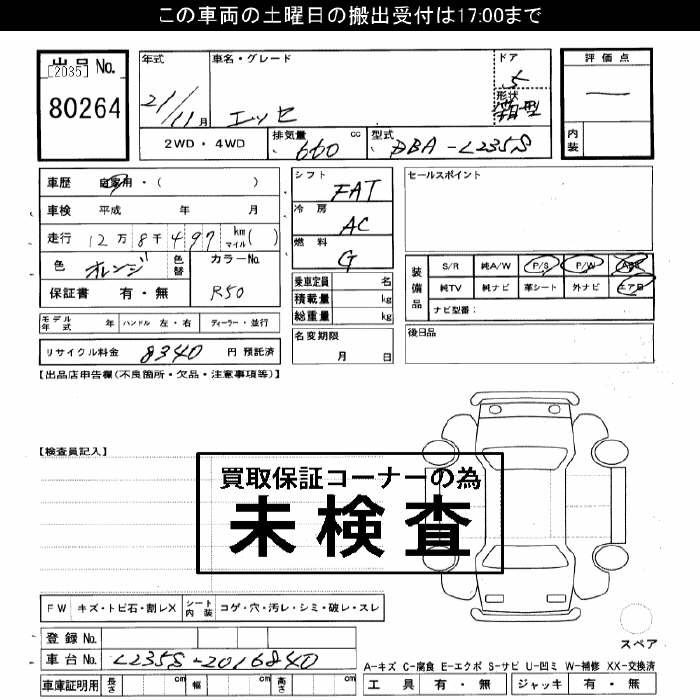 この車両の土曜日の搬出受付は17:00まで
出品No.
[2035]
80264
年式
21/11月
車名・グレード
エッセ
ドア
5
形状
箱型
評価点
内装
2WD・4WD
排気量 660 cc
型式 DBA-L235S
車歴 自家用・( )
車検 平成 年 月
走行 12万8千497 km マイル( )
色 オレンジ 色替
カラーNo. R50
保証書 有・無
シフト FAT
冷房 AC
燃料 G
乗車定員 名
積載量 kg
総重量 kg
セールスポイント
装備品
S/R 純A/W P/S P/W ABS
純TV 純ナビ 革シート 外ナビ エアB
ナビ型番:
モデル年式 年 ハンドル 左・右 ディーラー・並行
名変期限 月 日
後日品
リサイクル料金 8340 円 預託済
【出品店申告欄(不良箇所・欠品・注意事項等)】
【検査員記入】
買取保証コーナーの為
未検査
FW キズ・トビ石・割レX シート内装 コゲ・穴・汚レ・シミ・破レ・スレ
登録No.
車台No. L235S-2016840
車庫証明用 長さ cm 幅 cm 高さ cm
スペア
A-キズ C-腐食 E-エクボ S-サビ U-凹ミ W-補修 XX-交換済
工具 有・無 ジャッキ 有・無